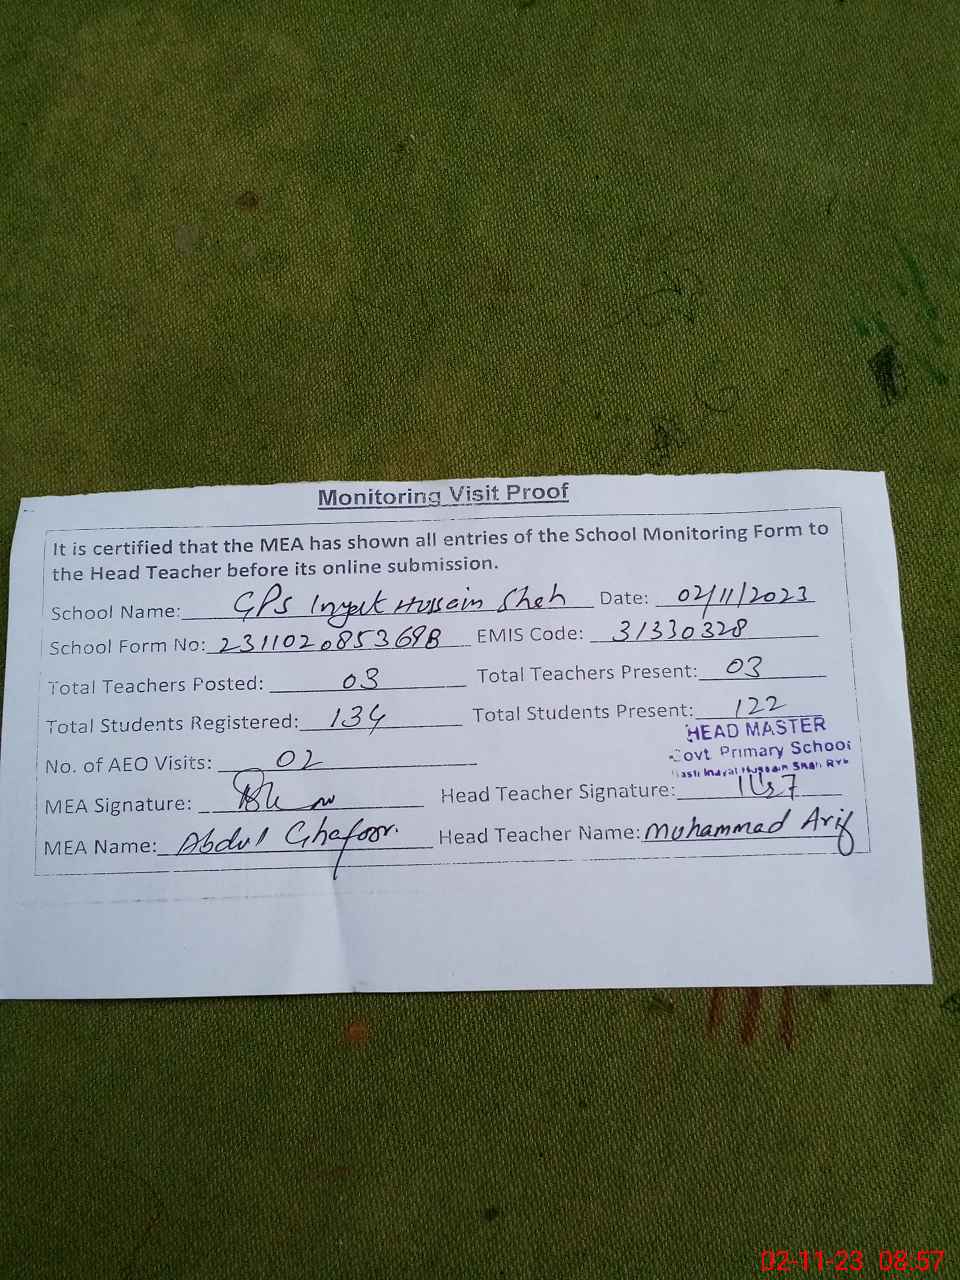 Monitoring Visit Proof
It is certified that the MEA has shown all entries of the School Monitoring Form to
the Head Teacher before its online submission.
School Name: GPS Inyat Hussain Shah Date: 02/11/2023
School Form No: 231102085369B EMIS Code: 31330328
Total Teachers Posted: 03 Total Teachers Present: 03
Total Students Registered: 134 Total Students Present: 122
HEAD MASTER
Govt Primary School
No. of AEO Visits: 02
Basti Inayat Hussain Shah RYK
MEA Signature: Head Teacher Signature:
MEA Name: Abdul Ghafoor. Head Teacher Name: Muhammad Arif
02-11-23 08:57